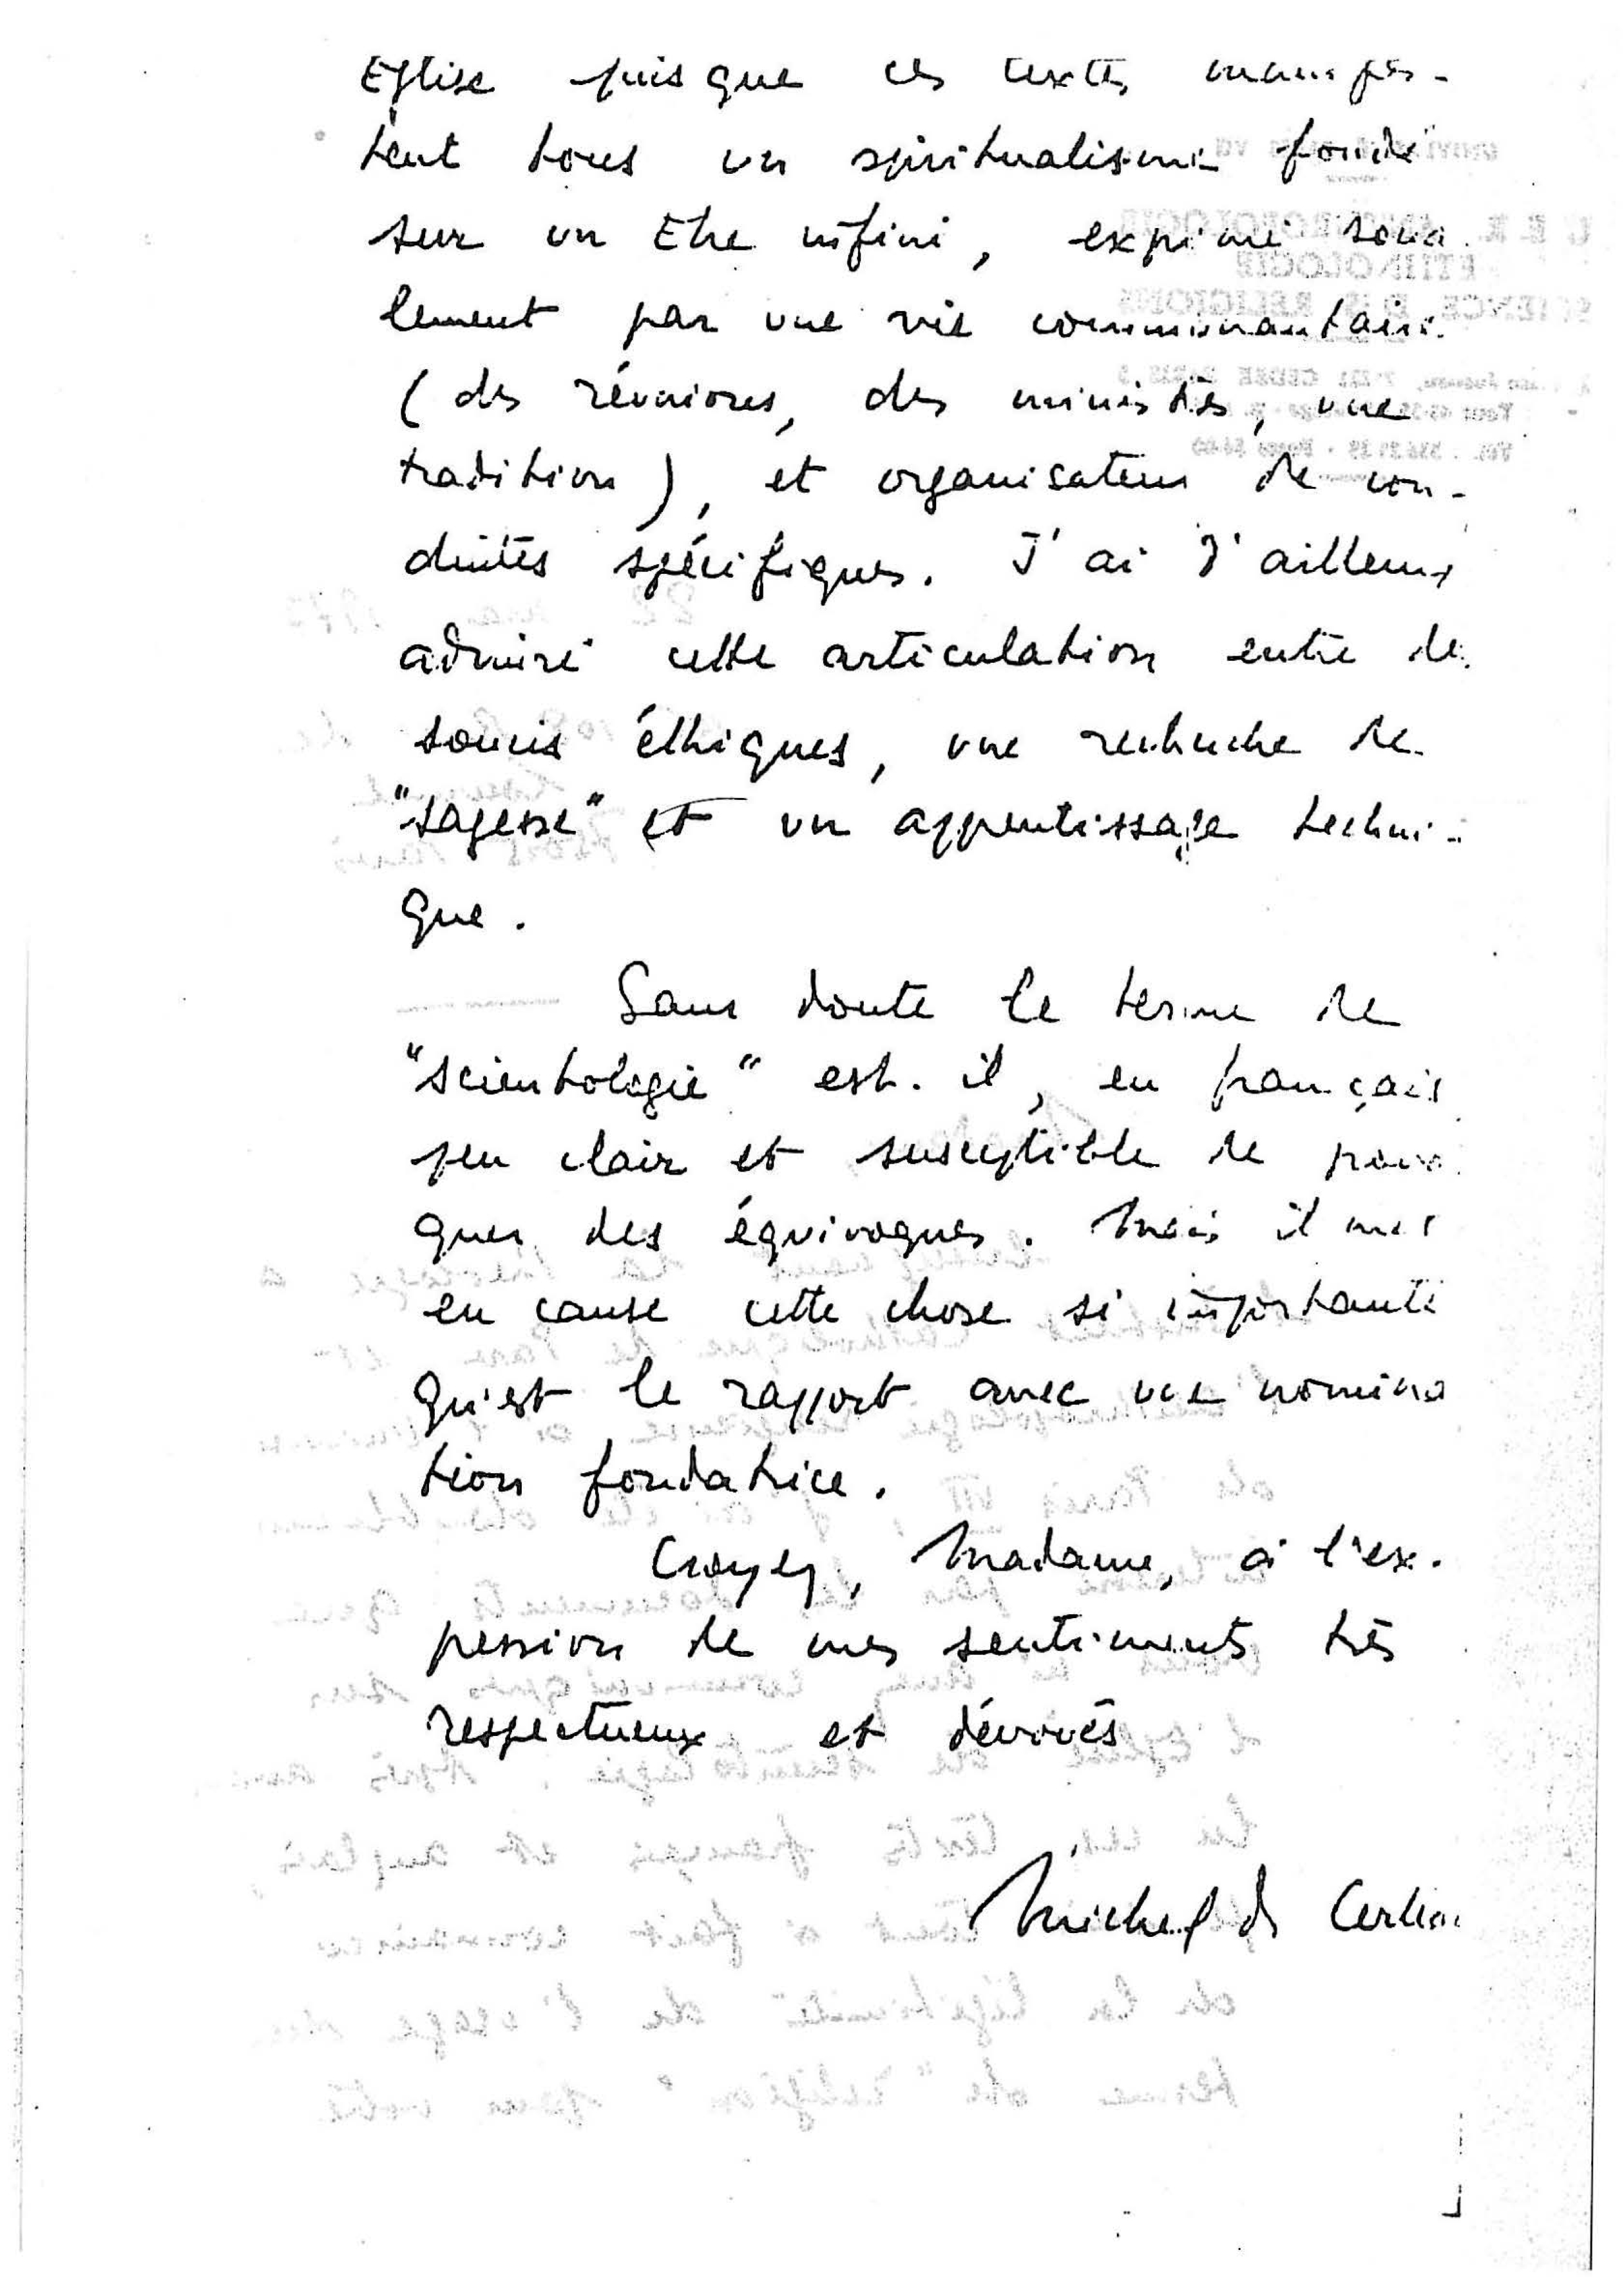 Eglise puisque ces textes manifes-
tent tous un spiritualisme fondé
sur un Etre infini, exprimé socia
lement par une vie communautaire
(des réunions, des ministres, une
tradition), et organisateur de con-
duites spécifiques. J'ai d'ailleurs
admiré cette articulation entre des
soucis éthiques, une recherche de
"sagesse" et un apprentissage techni-
que.
Sans doute le terme de
"scientologie" est-il, en français
peu clair et susceptible de provo
quer des équivoques. Mais il met
en cause cette chose si importante
qu'est le rapport avec une nomina
tion fondatrice.
Croyez, Madame, à l'ex-
pression de mes sentiments très
respectueux et dévoués
Michel de Certeau